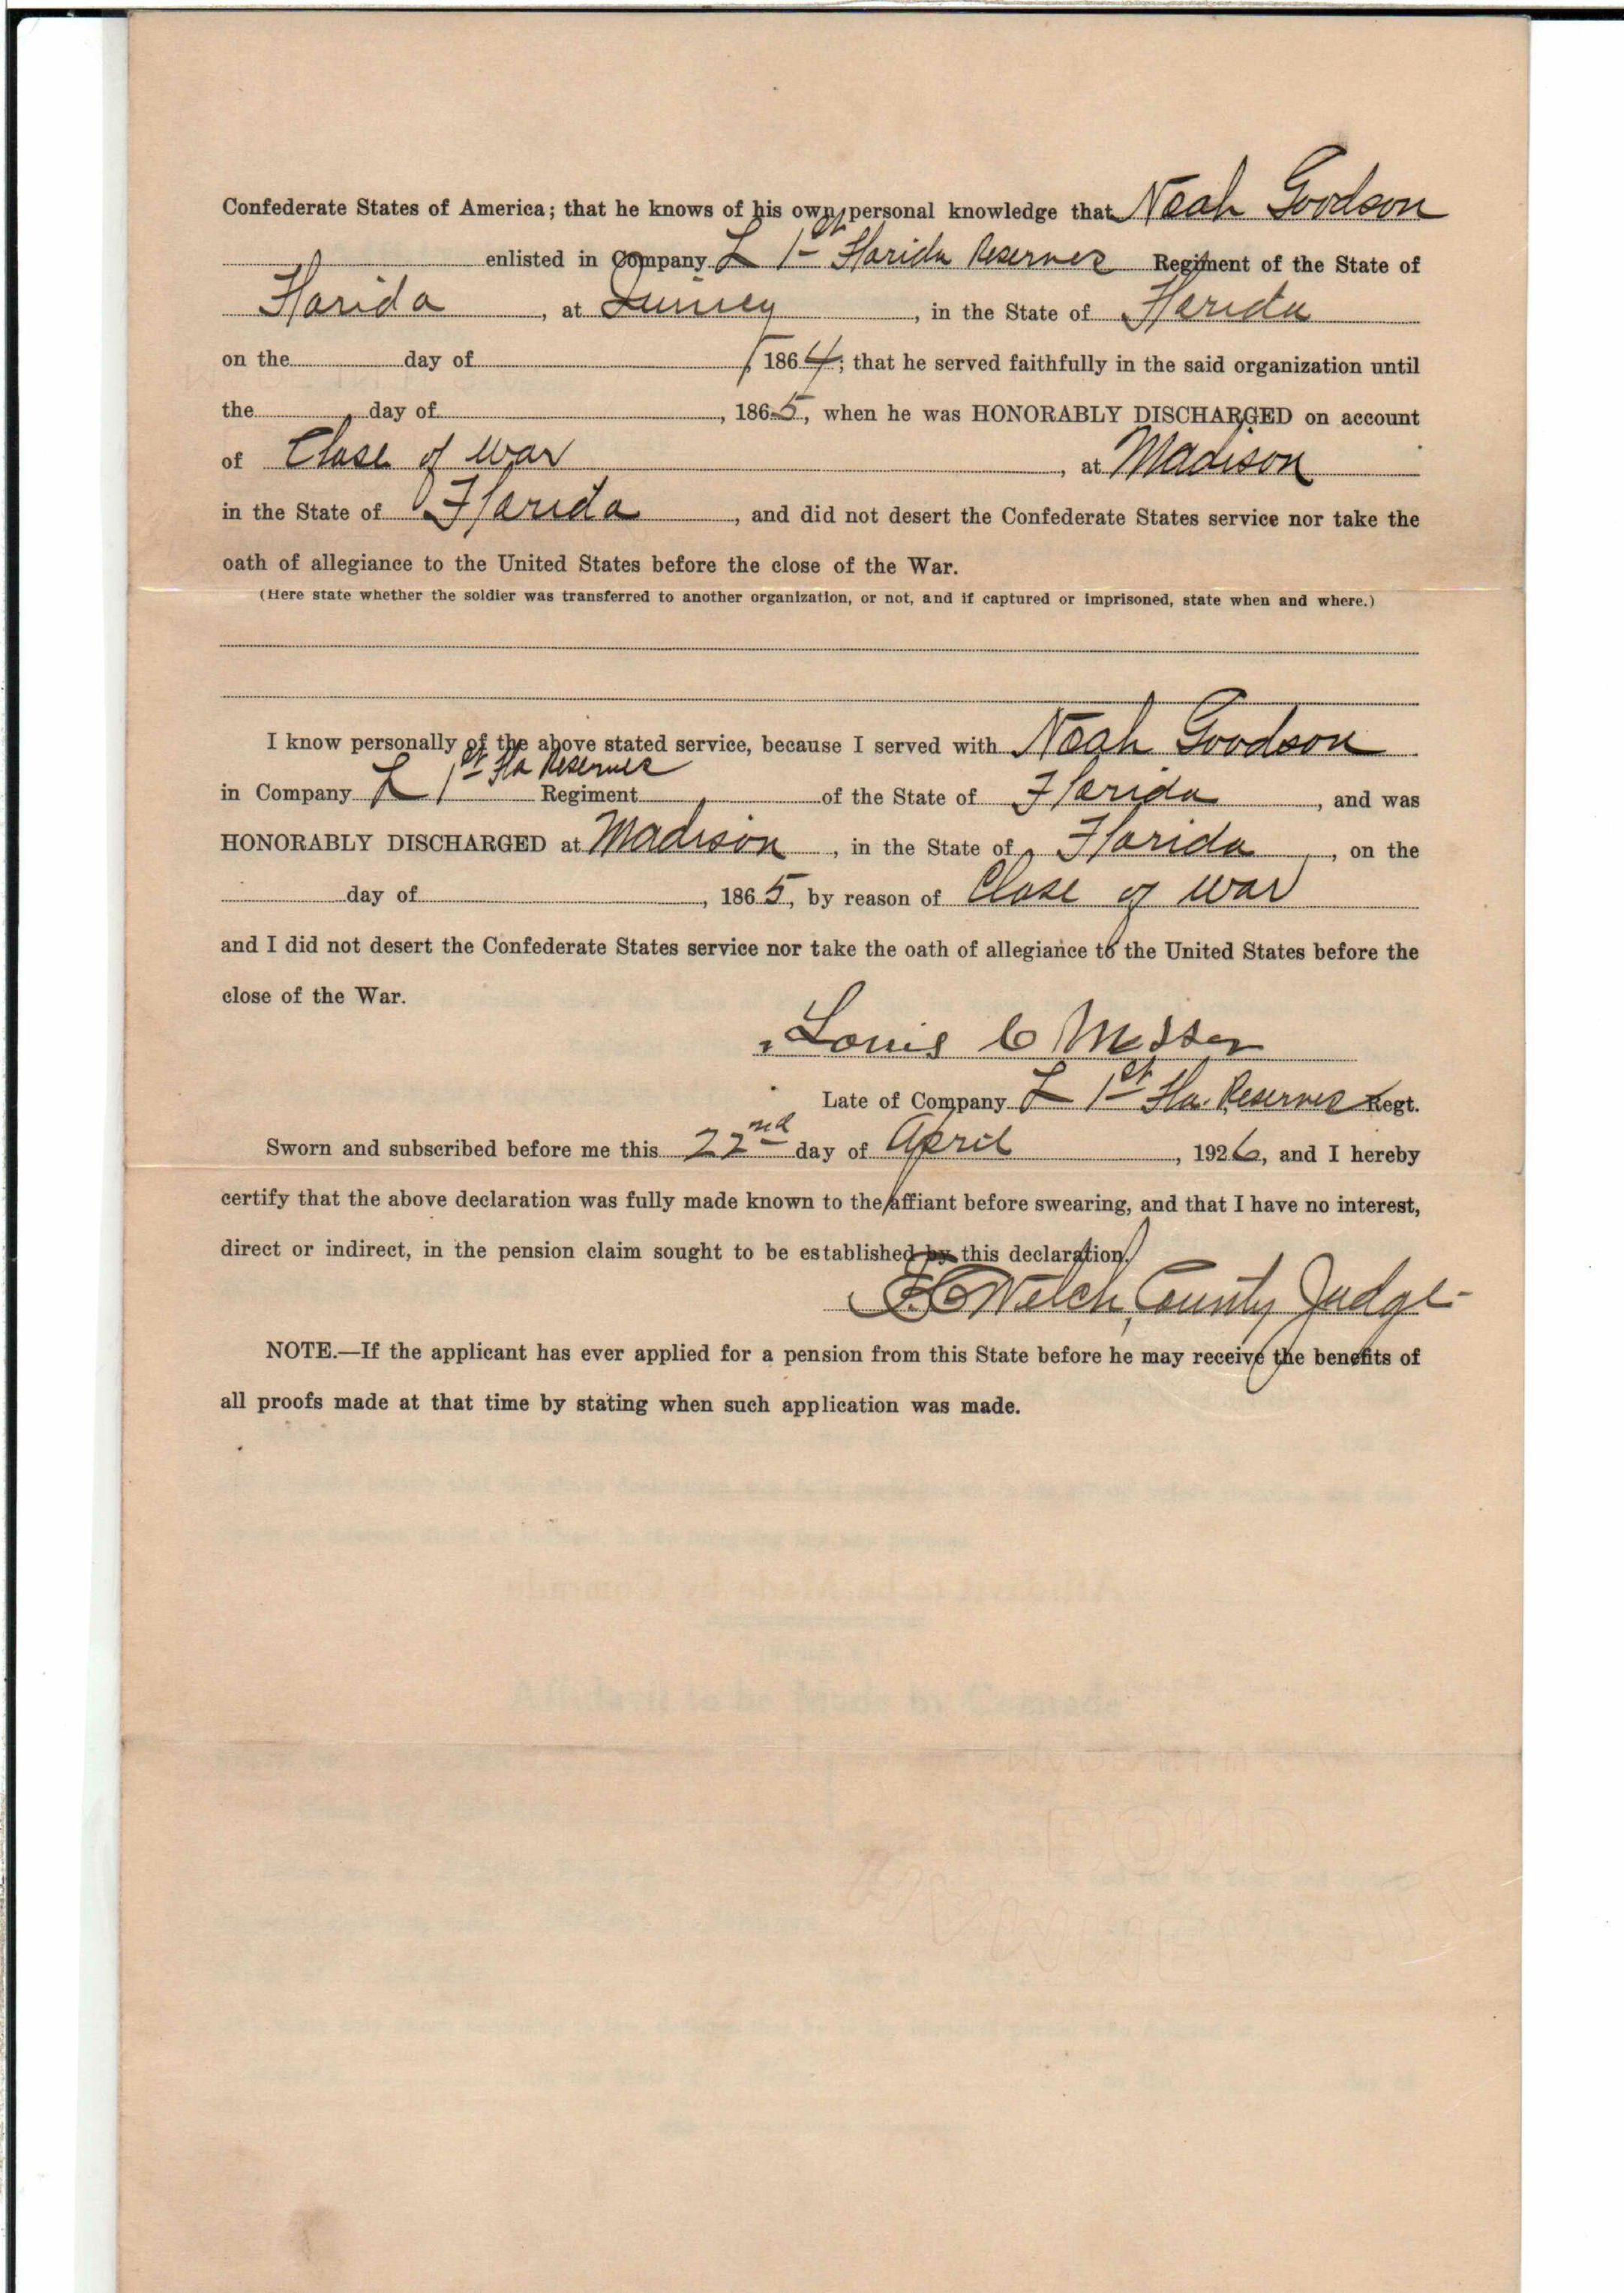 Confederate States of America; that he knows of his own personal knowledge that Noah Goodson
enlisted in Company L 1st Florida Reserves Regiment of the State of
Florida, at Quincy, in the State of Florida
on the day of , 1864; that he served faithfully in the said organization until
the day of , 1865, when he was HONORABLY DISCHARGED on account
of Close of war, at Madison
in the State of Florida, and did not desert the Confederate States service nor take the
oath of allegiance to the United States before the close of the War.
(Here state whether the soldier was transferred to another organization, or not, and if captured or imprisoned, state when and where.)
I know personally of the above stated service, because I served with Noah Goodson
in Company L 1st Fla Reserves Regiment of the State of Florida, and was
HONORABLY DISCHARGED at Madison, in the State of Florida, on the
day of , 1865, by reason of Close of war
and I did not desert the Confederate States service nor take the oath of allegiance to the United States before the
close of the War.
Louis C Messer
Late of Company L 1st Fla. Reserves Regt.
Sworn and subscribed before me this 22nd day of April, 1926, and I hereby
certify that the above declaration was fully made known to the affiant before swearing, and that I have no interest,
direct or indirect, in the pension claim sought to be established by this declaration.
F.C. Welch, County Judge
NOTE.—If the applicant has ever applied for a pension from this State before he may receive the benefits of
all proofs made at that time by stating when such application was made.